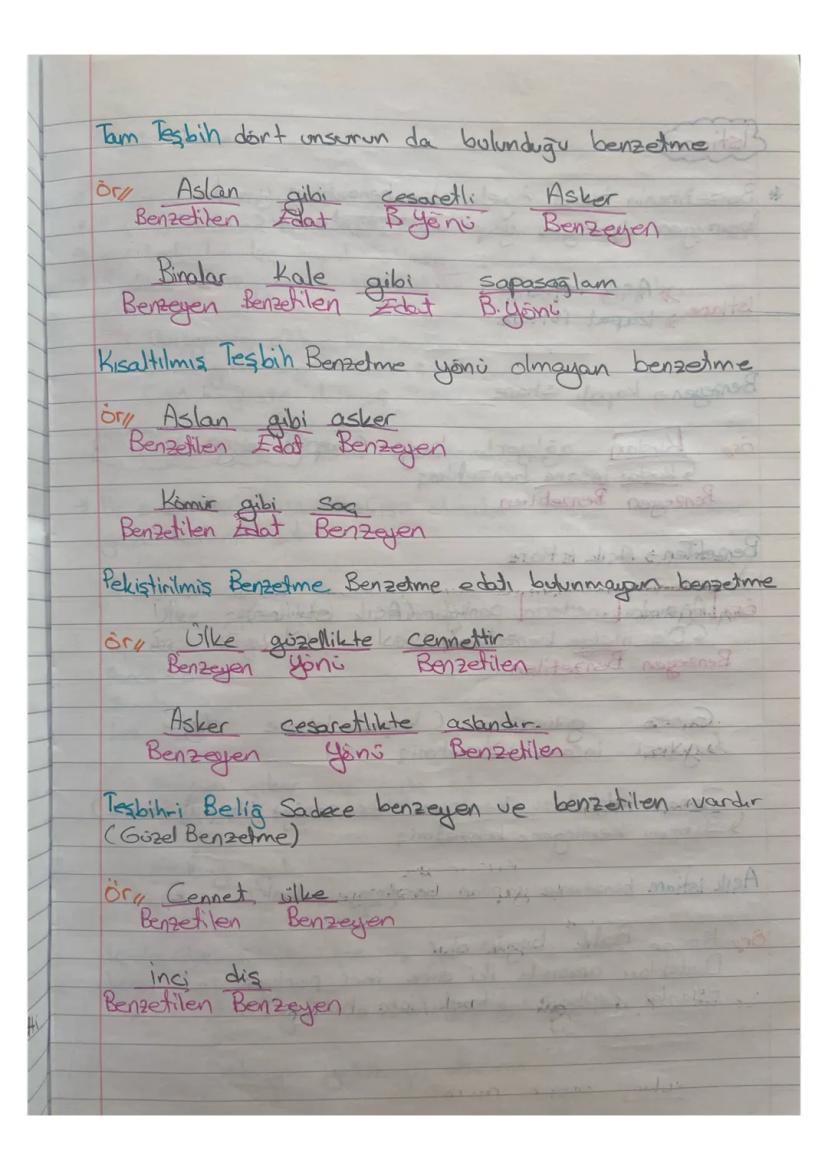 Tam Teşbih dört unsurun da bulunduğu benzetme
Ör// Aslan gibi cesaretli Asker
Benzetilen Edat B Yönü Benzeyen
Binalar kale gibi sapasağlam
Benzeyen Benzetilen Edat B.yönü
Kısaltılmış Teşbih Benzetme yönü olmayan benzetme
ör// Aslan gibi asker
Benzetilen Edat Benzeyen
Kömür gibi saç
Benzetilen Edat Benzeyen
Pekiştirilmiş Benzetme Benzetme edatı bulunmayan benzetme
ör// Ülke güzellikte cennettir
Benzeyen Yönü Benzetilen
Asker cesaretlikte aslandır.
Benzeyen Yönü Benzetilen
Teşbih-i Beliğ Sadece benzeyen ve benzetilen vardır
(Güzel Benzetme)
Ör// Cennet ülke
Benzetilen Benzeyen
inci diş
Benzetilen Benzeyen